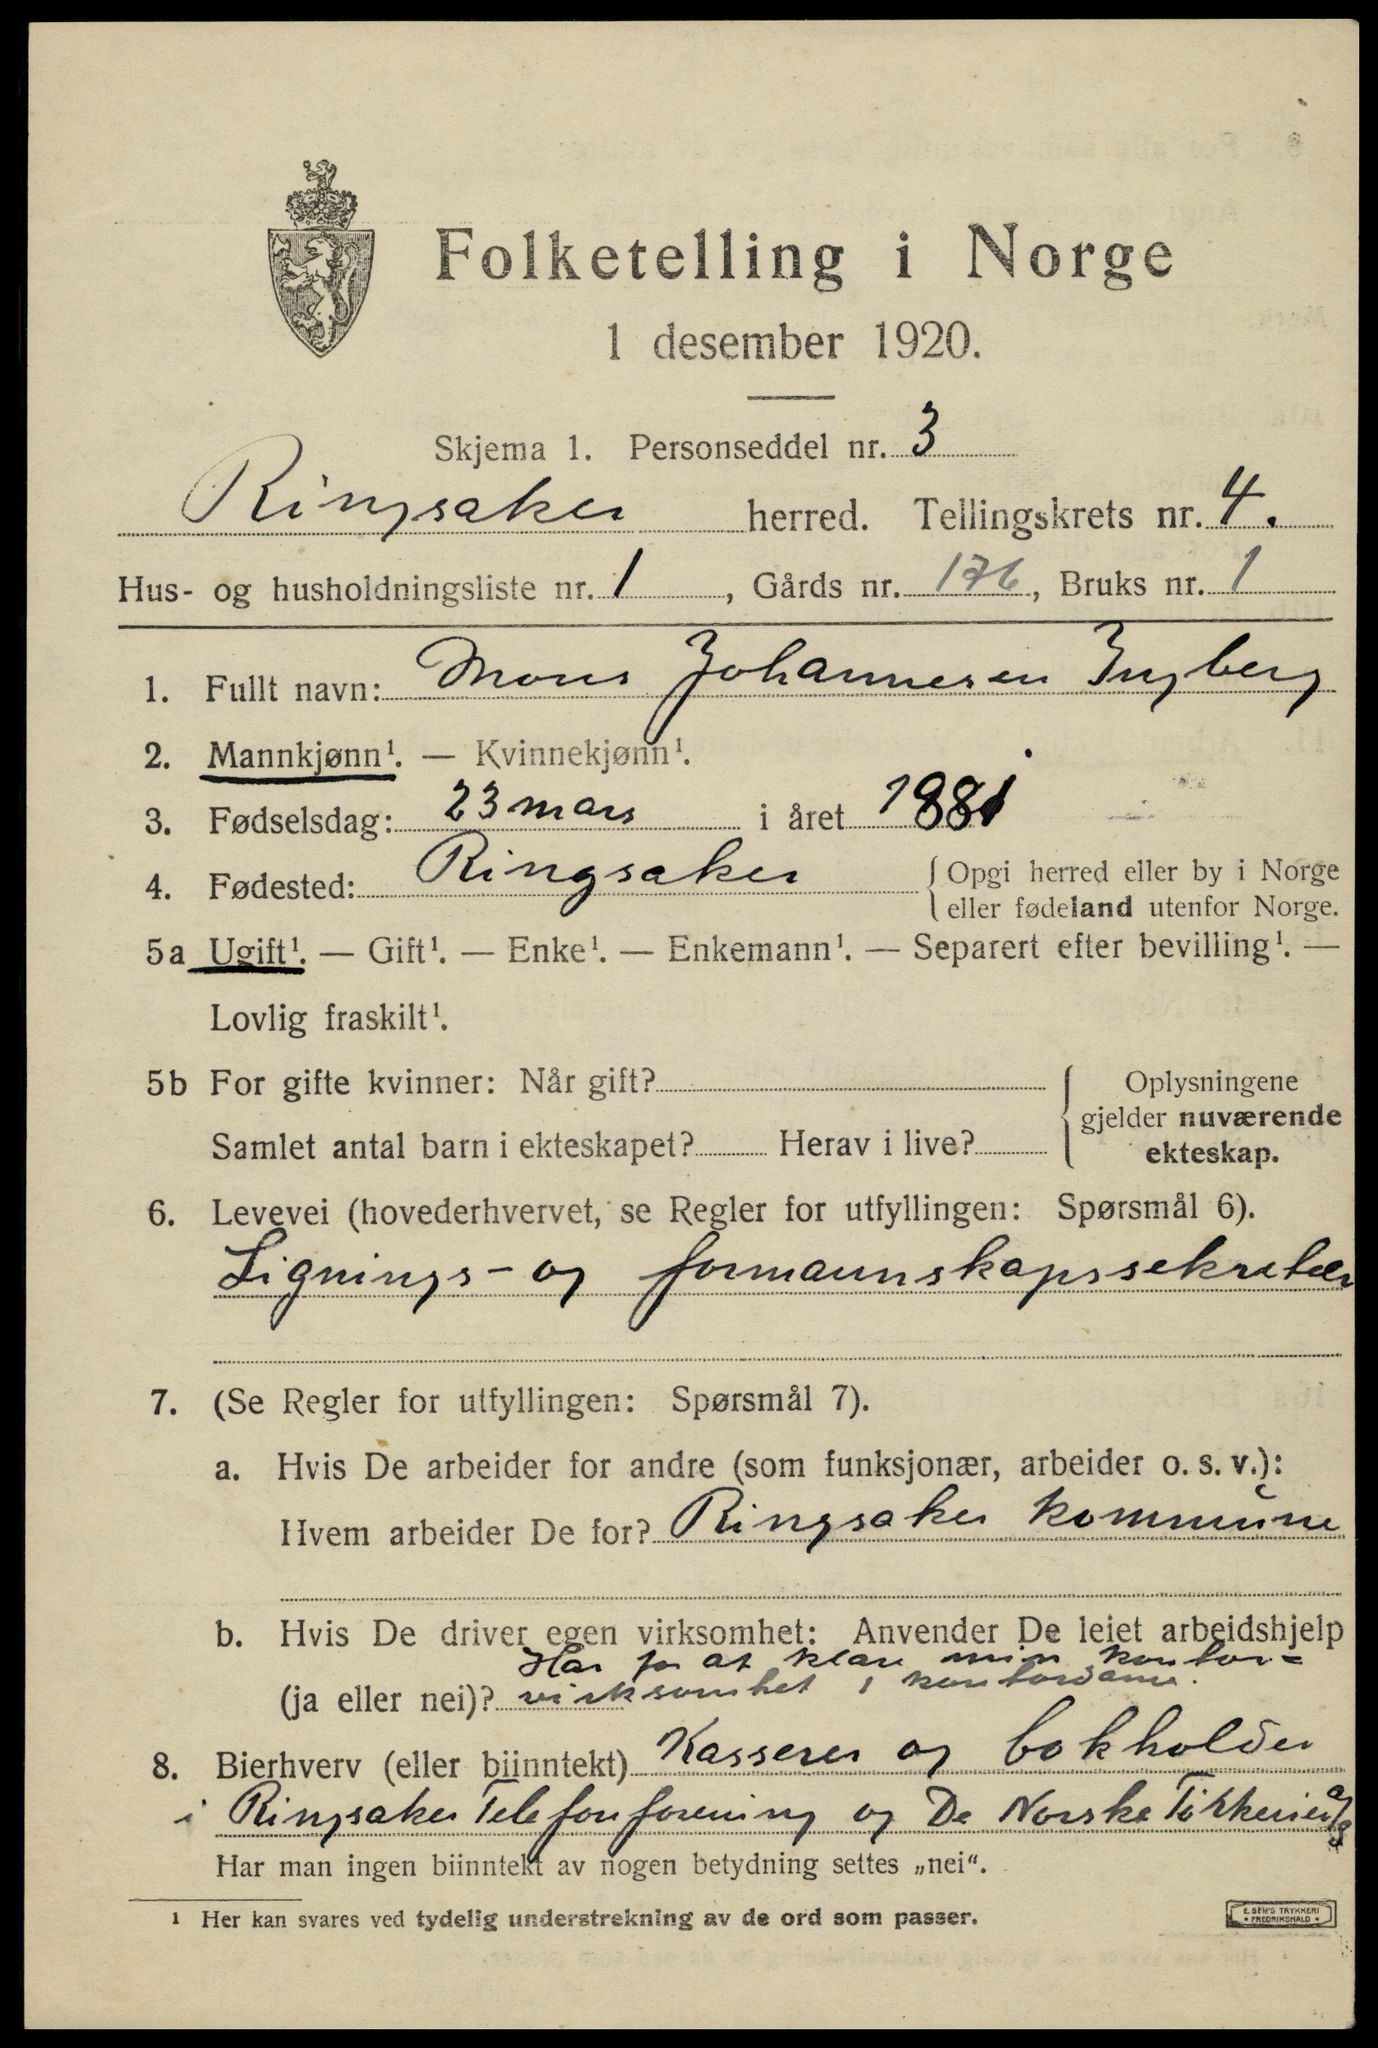 Folketelling i Norge
1 desember 1920.
Skjema 1. Personseddel nr. 3
Ringsaker herred. Tellingskrets nr. 4.
Hus- og husholdningsliste nr. 1, Gårds nr. 176, Bruks nr. 1
1. Fullt navn: Mons Johannesen Ingberg
2. Mannkjønn¹. — Kvinnekjønn¹.
3. Fødselsdag: 23 mars i året 1881
4. Fødested: Ringsaker { Opgi herred eller by i Norge
eller fødeland utenfor Norge.
5a Ugift¹. — Gift¹. — Enke¹. — Enkemann¹. — Separert efter bevilling¹. —
Lovlig fraskilt¹.
5b For gifte kvinner: Når gift? { Oplysningene
gjelder nuværende
Samlet antal barn i ekteskapet? Herav i live? ekteskap.
6. Levevei (hovederhvervet, se Regler for utfyllingen: Spørsmål 6).
Lignings- og formannskapssekretær
7. (Se Regler for utfyllingen: Spørsmål 7).
a. Hvis De arbeider for andre (som funksjonær, arbeider o. s. v.):
Hvem arbeider De for? Ringsaker kommune
b. Hvis De driver egen virksomhet: Anvender De leiet arbeidshjelp
Har for at klare min kontor-
(ja eller nei)? virksomhet 1 kontordame.
8. Bierhverv (eller biinntekt) Kasserer og bokholder
i Ringsaker Telefonforening og De Norske Tikkerier a/s
Har man ingen biinntekt av nogen betydning settes „nei“.
¹ Her kan svares ved tydelig understrekning av de ord som passer.
E. SEM'S TRYKKERI
FREDRIKSHALD